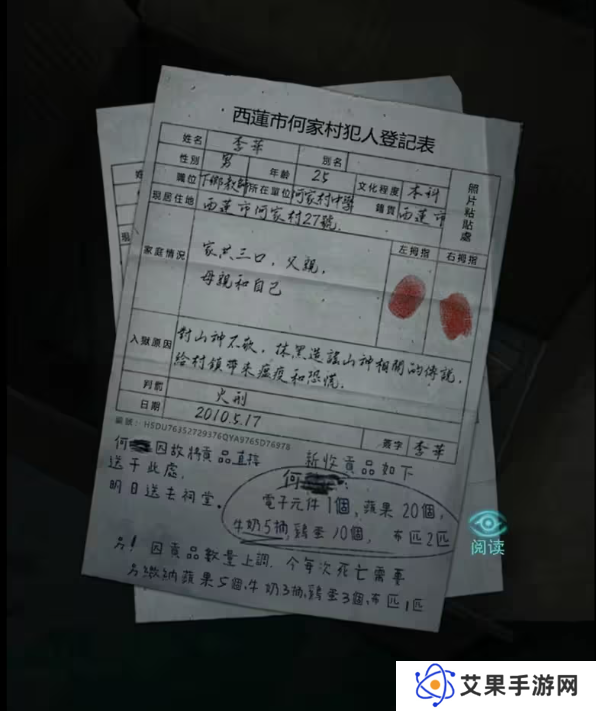 西蓮市何家村犯人登記表
姓名 李華 別名
性別 男 年齡 25 文化程度 本科
職位 下鄉教師 所在單位 何家村中學 籍貫 西蓮市
現居住地 西蓮市何家村27號.
照片粘貼處
家庭情況 家共三口，父親， 左拇指 右拇指
母親和自己
入獄原因 對山神不敬，抹黑造謠山神相關的傳說，
給村鎮帶來瘟疫和恐慌.
判罰 火刑
日期 2010.5.17
編號：HSDU76352729376QYA9765D76978 簽字 李華
何 因故將貢品直接
送于此處.
明日送去祠堂.
新收貢品如下
何
電子元件1個，蘋果20個，
牛奶5拊，鷄蛋10個， 布匹2匹
另！因貢品數量上調. 今每次死亡需要
另繳納蘋果5個，牛奶3拊，鷄蛋3個，布匹1匹
阅读
艾果手游网